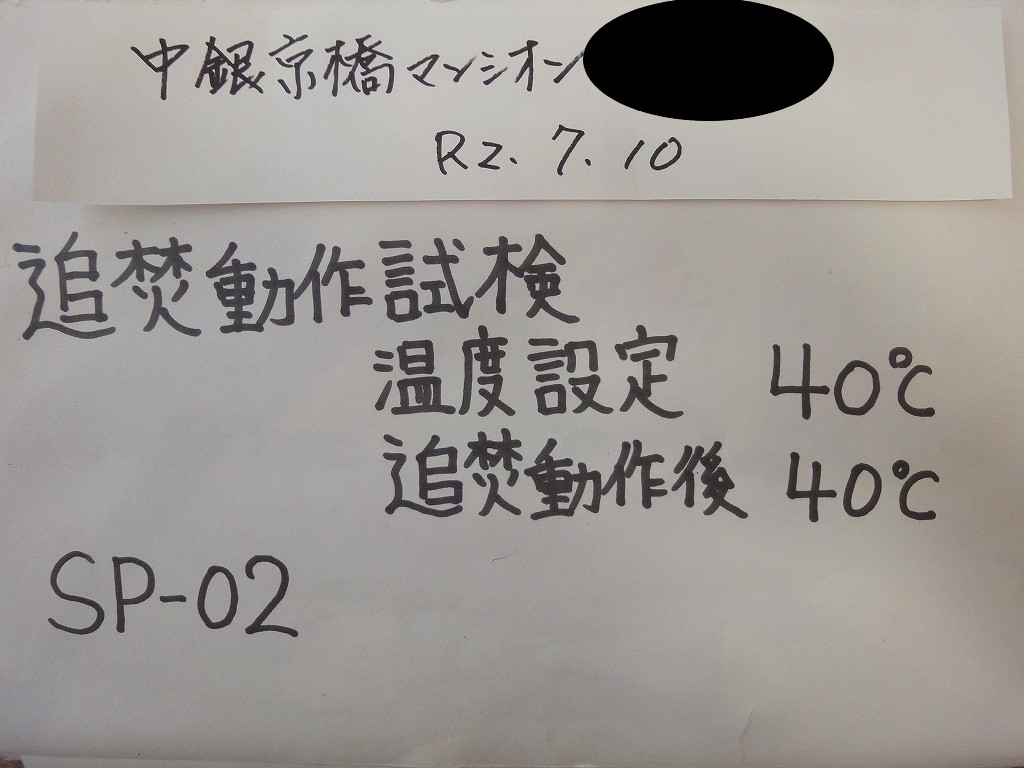 中銀京橋マンシオン
R2.7.10
追焚動作試検
温度設定 40℃
追焚動作後 40℃
SP-02